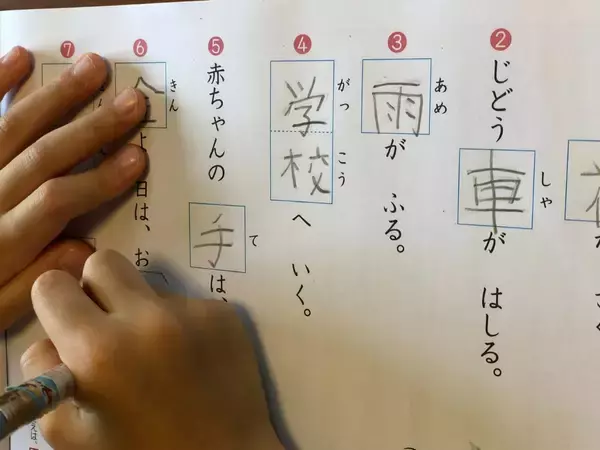 ② じどう車がはしる。
しゃ
③ 雨がふる。
あめ
④ 学校へいく。
がっこう
⑤ 赤ちゃんの手は、
て
⑥ 金よ日は、お
きん
⑦